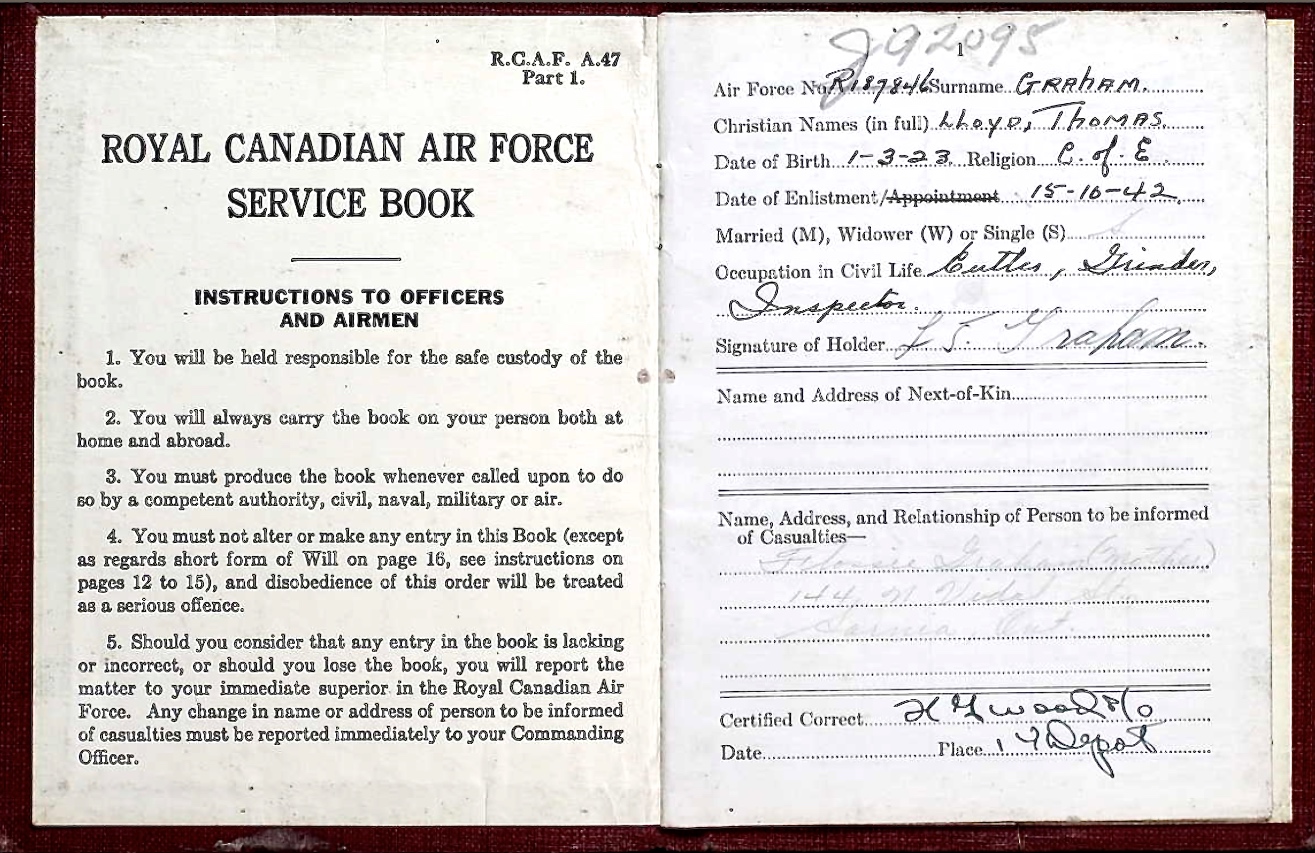 R.C.A.F. A.47
Part 1.
ROYAL CANADIAN AIR FORCE
SERVICE BOOK
INSTRUCTIONS TO OFFICERS
AND AIRMEN
1. You will be held responsible for the safe custody of the
book.
2. You will always carry the book on your person both at
home and abroad.
3. You must produce the book whenever called upon to do
so by a competent authority, civil, naval, military or air.
4. You must not alter or make any entry in this Book (except
as regards short form of Will on page 16, see instructions on
pages 12 to 15), and disobedience of this order will be treated
as a serious offence.
5. Should you consider that any entry in the book is lacking
or incorrect, or should you lose the book, you will report the
matter to your immediate superior in the Royal Canadian Air
Force. Any change in name or address of person to be informed
of casualties must be reported immediately to your Commanding
Officer.
J92095
1
Air Force No. R187846 Surname GRAHAM.
Christian Names (in full) LLOYD, THOMAS
Date of Birth 1-3-23 Religion C. of E.
Date of Enlistment/Appointment 15-10-42
Married (M), Widower (W) or Single (S) S
Occupation in Civil Life Cutler, Grinder,
Inspector.
Signature of Holder L T. Graham
Name and Address of Next-of-Kin
Name, Address, and Relationship of Person to be informed
of Casualties—
Flossie Graham (Mother)
144 N Vidal St.
Sarnia Ont.
Certified Correct wood F/O
Date Place Depot